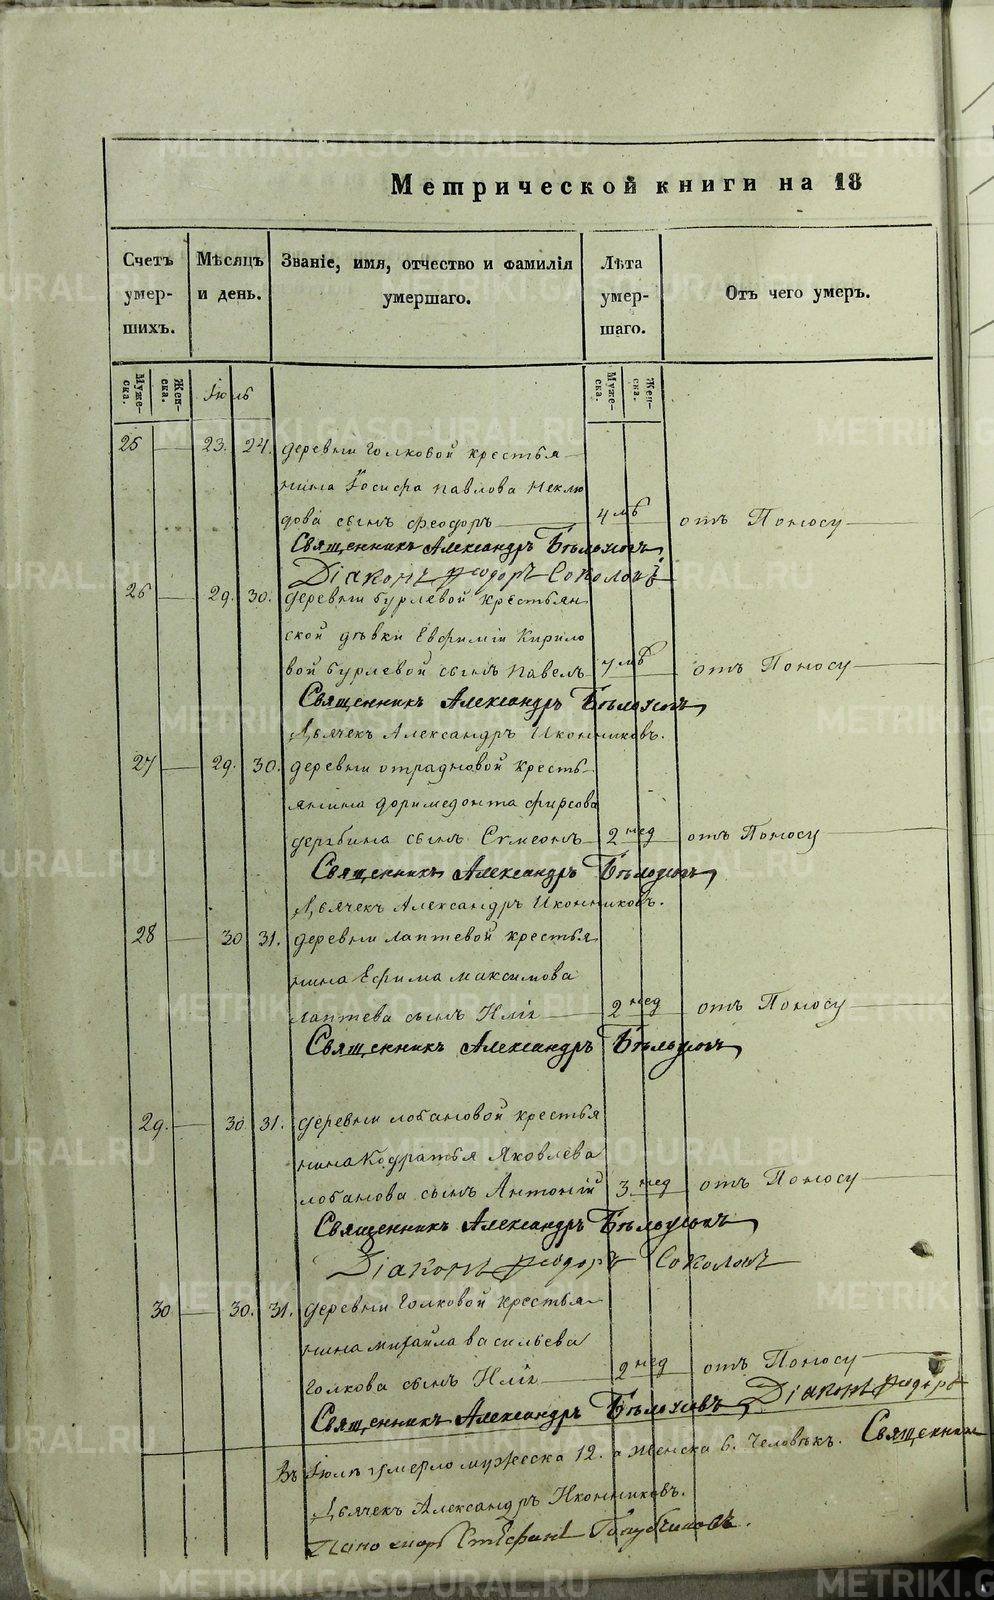 Метрической книги на 18
Счетъ умер-шихъ.
Мѣсяцъ и день.
Званіе, имя, отчество и фамилія умершаго.
Лѣта умер-шаго.
Отъ чего умеръ.
Муже-ска.
Жен-ска.
Іюль
Муже-ска.
Жен-ска.
25 23. 24. деревни Голковой крестья
нина Іосифа Павлова Неклю
дова сынъ Феодоръ 4 мѣ отъ Поносу
Священникъ Александръ
Діаконъ Феодоръ Соколовъ
26 29. 30. деревни Бурлевой крестьян
ской дѣвки Евфиміи Кирило
вой Бурлевой сынъ Павелъ 7 мѣ отъ Поносу
Священникъ Александръ
Дьячекъ Александръ Иконниковъ.
27 29. 30. деревни Отрадновой кресть
янина Доримедонта Фирсова
Дерябина сынъ Сумеонъ 2 нед отъ Поносу
Священникъ Александръ
Дьячекъ Александръ Иконниковъ.
28 30 31. деревни Лаптевой крестья
нина Ефима Максимова
Лаптева сынъ Иліи 2 нед отъ Поносу
Священникъ Александръ
29. 30. 31. деревни Лобановой крестья
нина Кодратья Яковлева
Лобанова сынъ Антоній 3 нед отъ Поносу
Священникъ Александръ
Діаконъ Феодоръ Соколовъ
30 30. 31. деревни Голковой крестья
нина Михаила Васильева
Голкова сынъ Иліи 2 нед отъ Поносу
Священникъ Александръ Діаконъ Феодоръ
Въ Іюлѣ умерло мужеска 12. а женска 6. Человѣкъ. Священник
Дьячекъ Александръ Иконниковъ.
Пономарь Стефанъ
METRIKI.GASO-URAL.RU